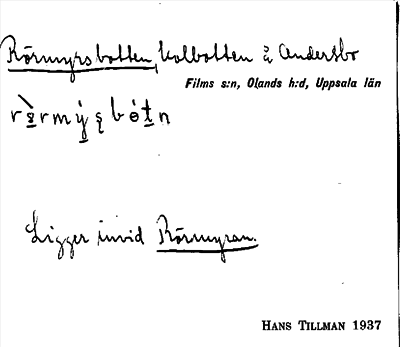 Rörmyrsbotten, kolbotten å Andersbo
Films s:n, Olands h:d, Uppsala län
Ligger invid Rörmyran.
HANS TILLMAN 1937